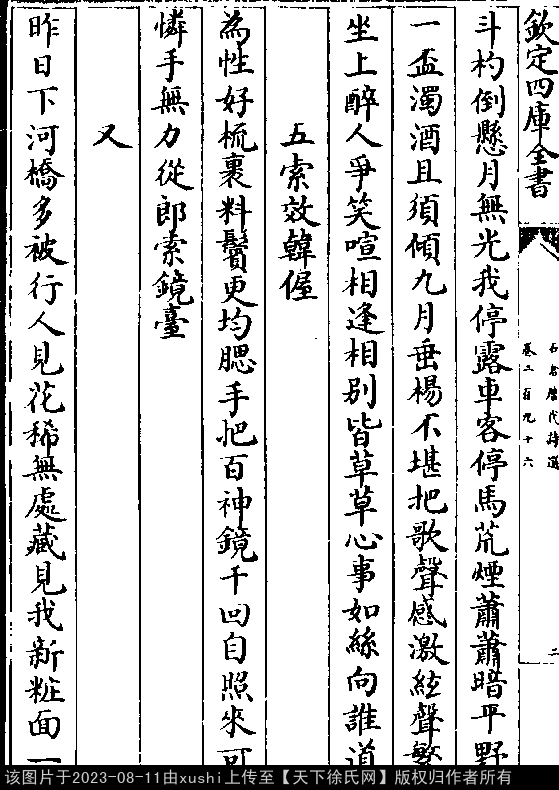 欽定四庫全書
石倉歷代詩選
卷二百九十六
二
斗杓倒懸月無光我停露車客停馬荒煙蕭蕭暗平野
一盃濁酒且須傾九月垂楊不堪把歌聲感激絃聲繁
坐上醉人爭笑喧相逢相別皆草草心事如絲向誰道
五索效韓偓
為性好梳裹料鬢更均腮手把百神鏡千回自照來可
憐手無力從郎索鏡臺
又
昨日下河橋多被行人見花稀無處藏見我新粧面一
该图片于2023-08-11由xushi上传至【天下徐氏网】版权归作者所有